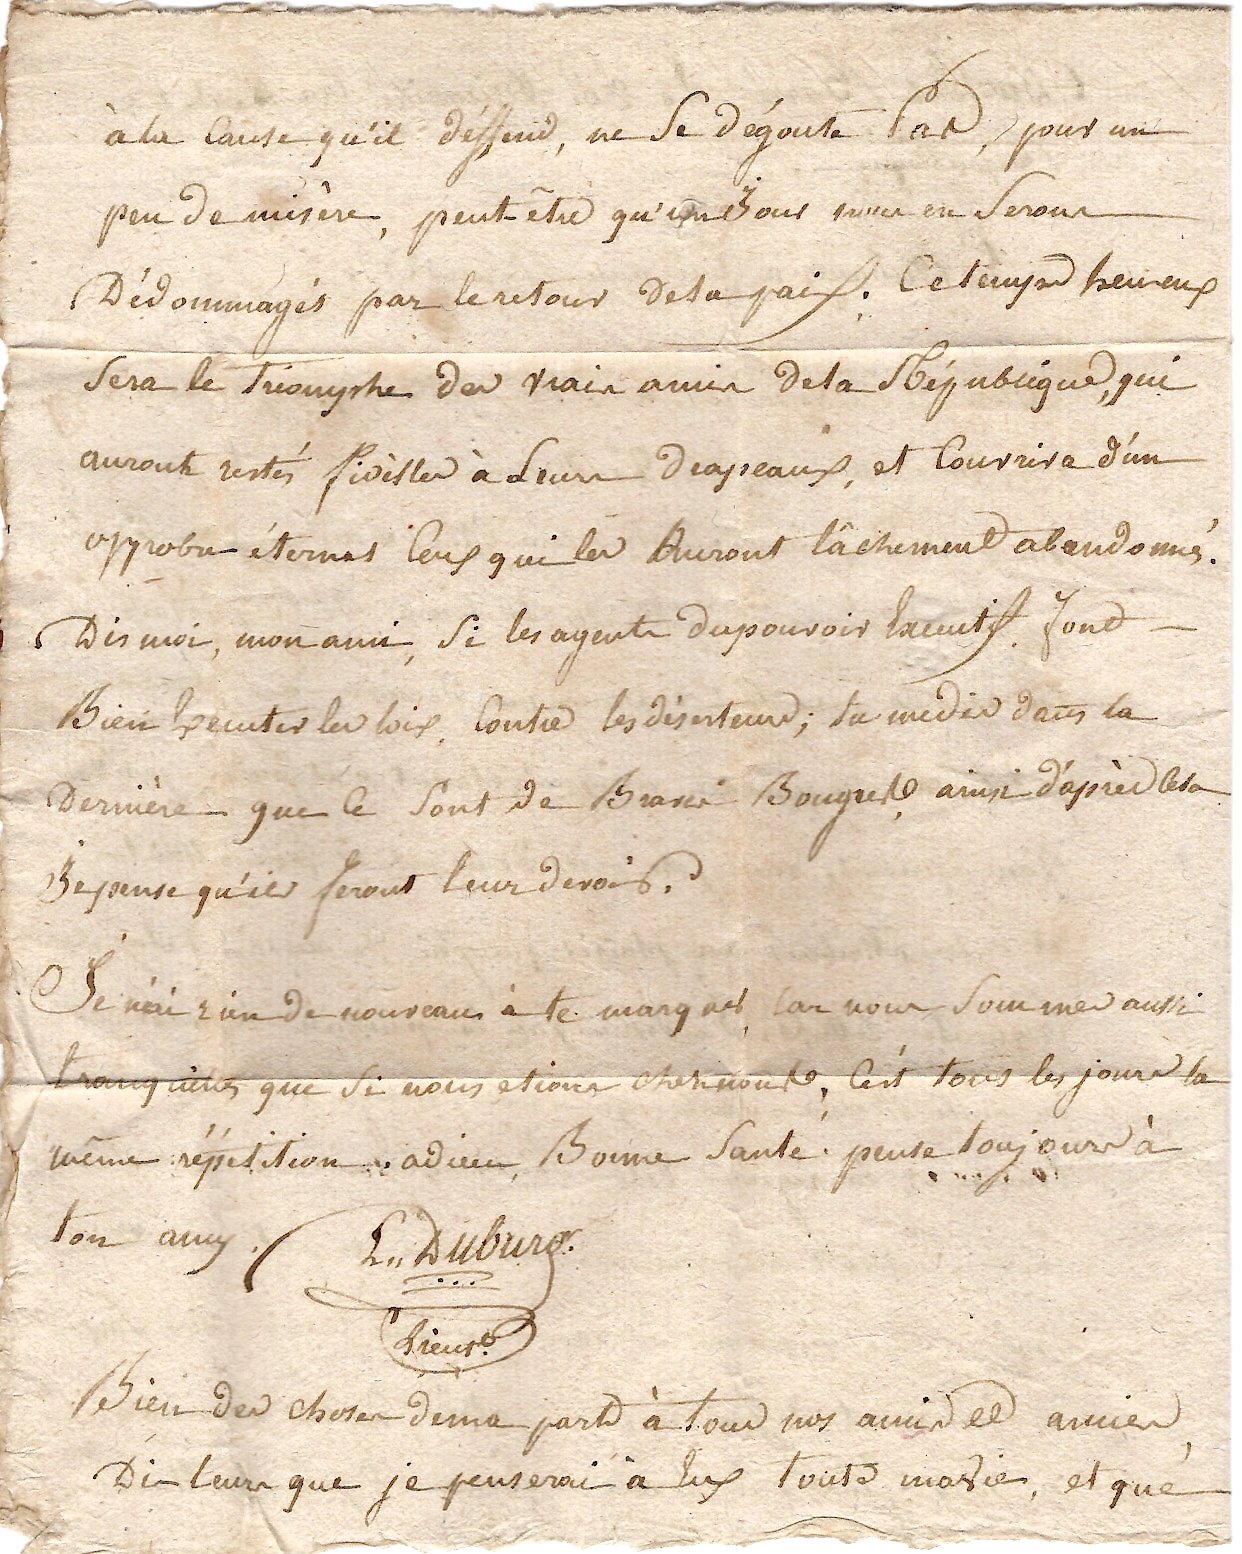 à la Cause qu'il déffend, ne Se dégoute Pas, pour un
peu de misère, peut-être qu'un Jour nous en Serons
Dédommagés par le retour de la paix. Ce temps heureux
Sera le Triomphe des vrais amis de la République, qui
auront restés fidèlles à Leurs drapeaux, et Couvrira d'un
opprobre éternel Ceux qui les Auront lâchement abandonnés.
Dis moi, mon ami, Si les agents du pouvoir Executif font
Bien Executer les loix Contre les déserteurs; tu me dis dans ta
Dernière que Ce Sont de Braves Bougres, ainsi d'après Cela
Je pense qu'ils feront leur devoir.
Je n'ai rien de nouveau à te marquer, Car nous Sommes aussi
tranquilles que Si nous etions chez nous, C'est tous les jours la
même répétition. adieu, Bonne Santé. pense toujours à
ton amy. Ls Duburg.
Lieut.
Bien des choses de ma part à tous nos amis et amies,
Dis leurs que je penserai à Eux toute ma vie, et que